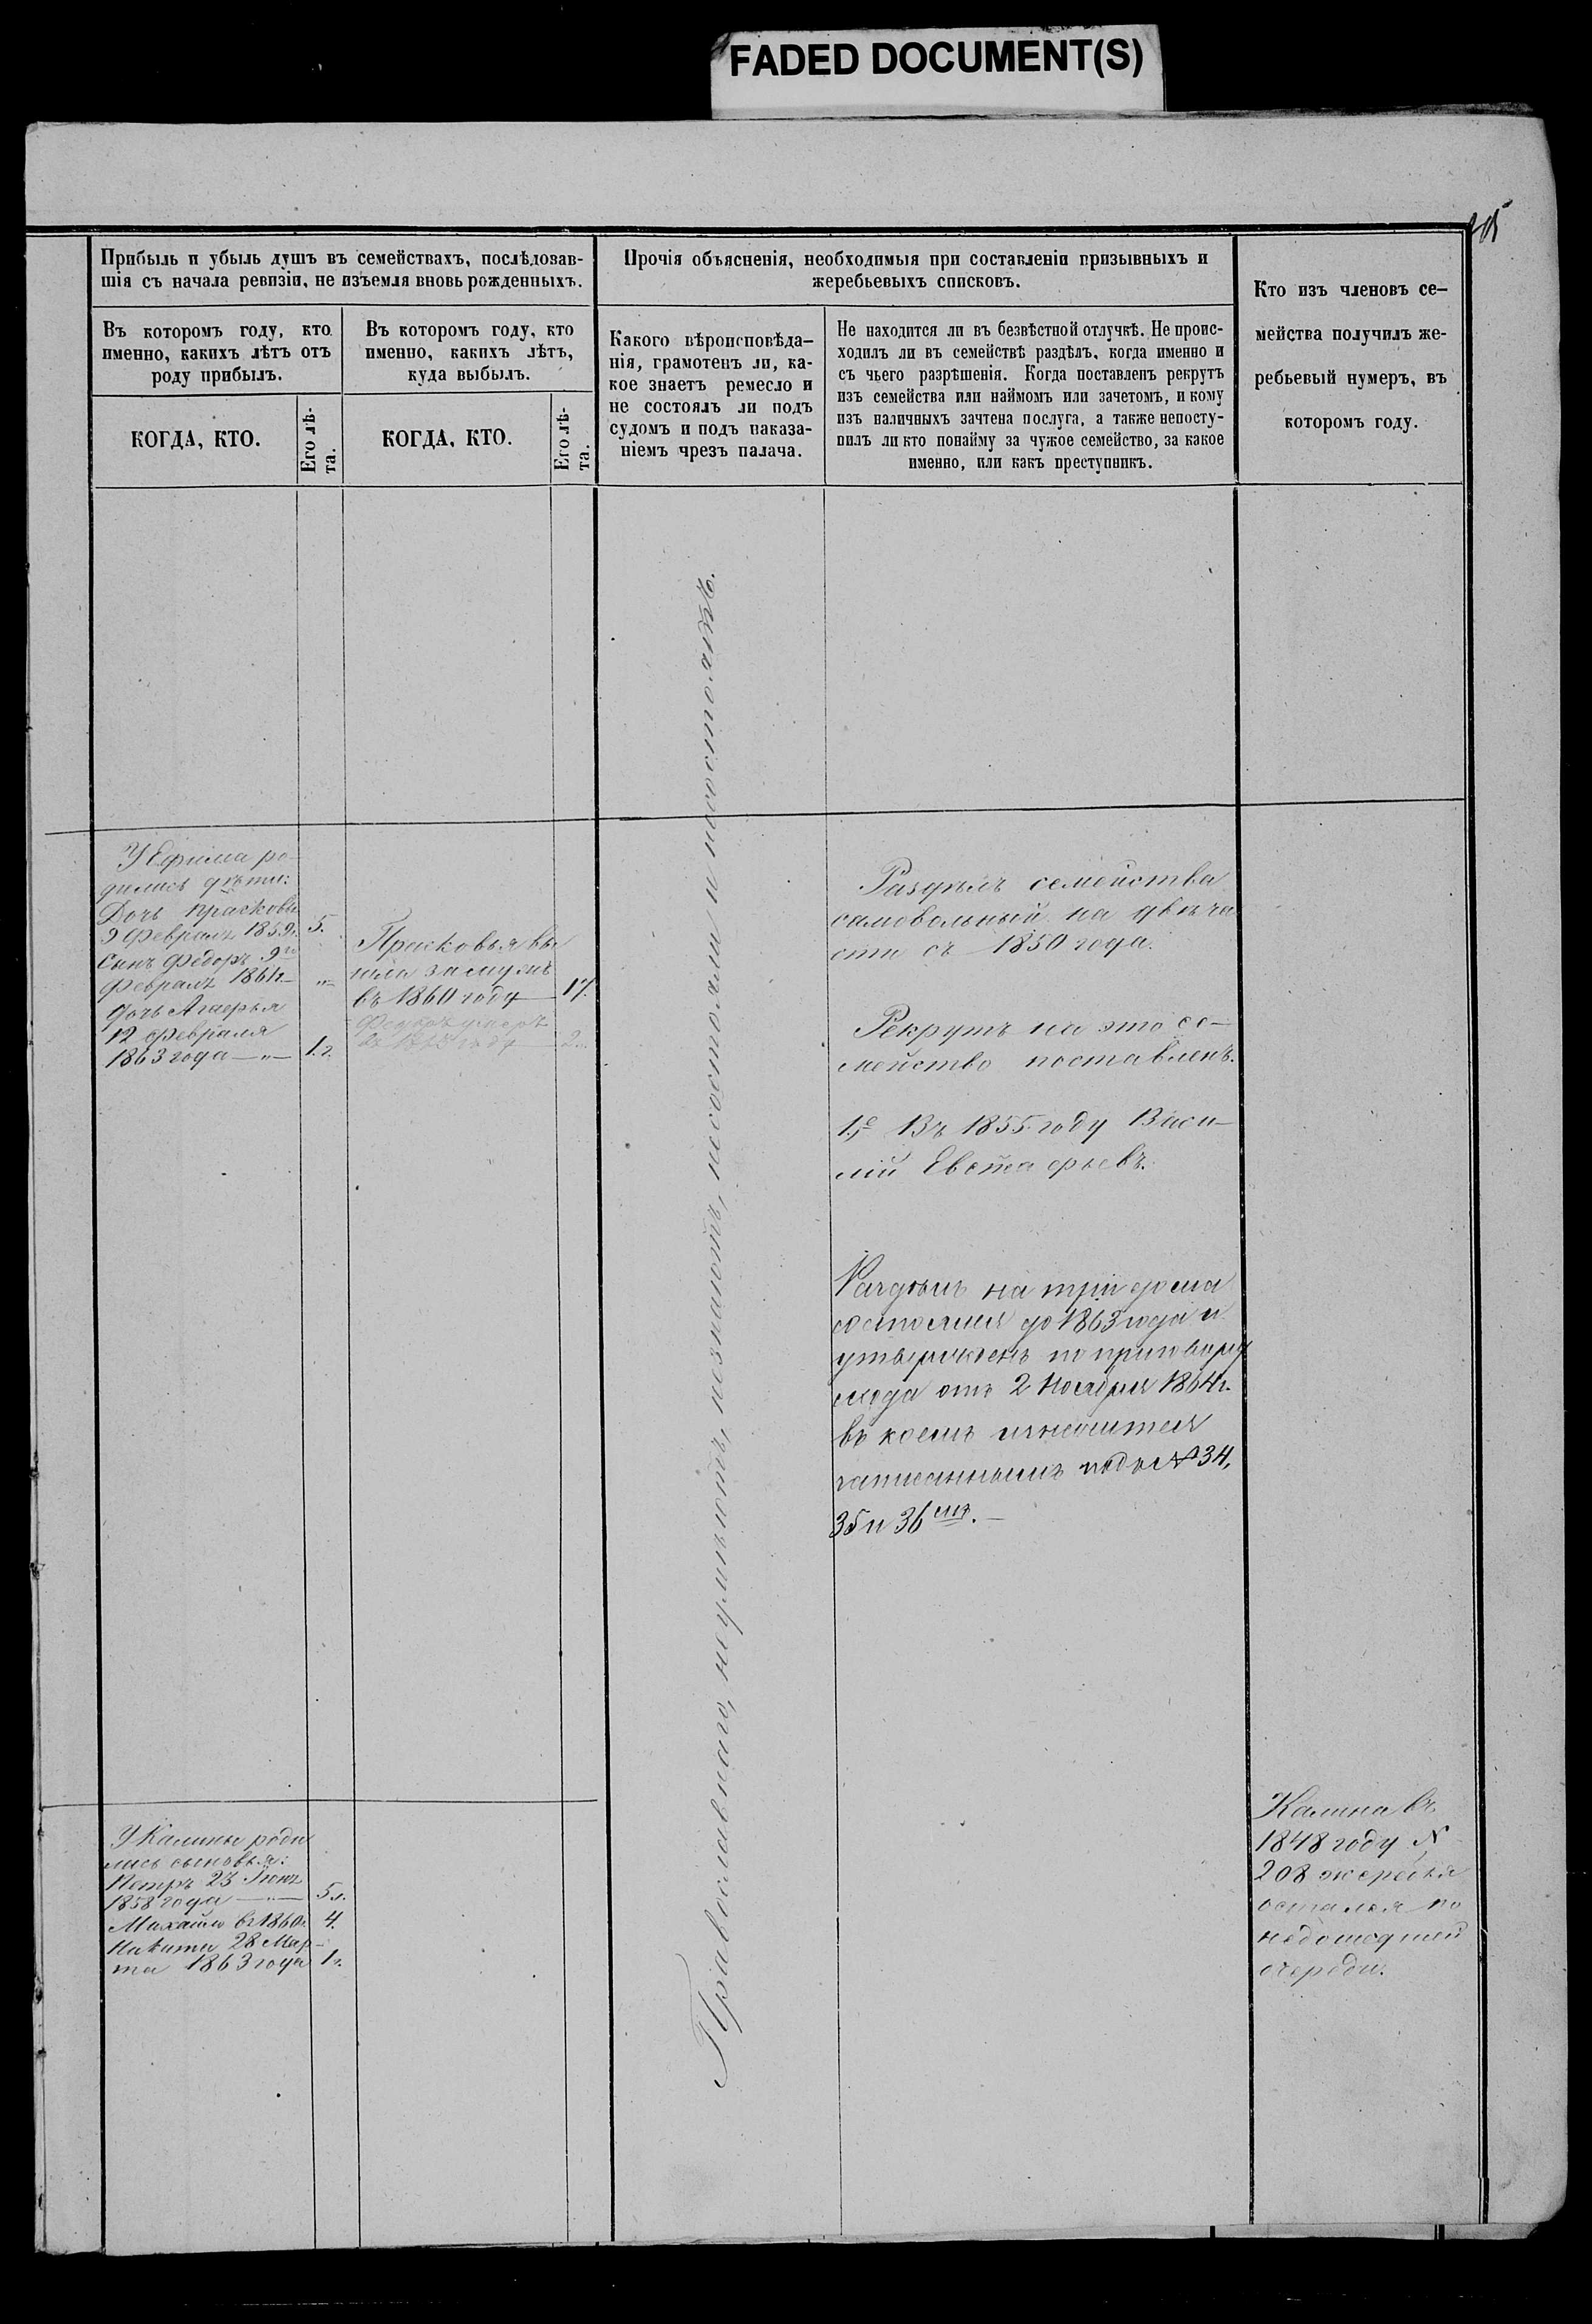 FADED DOCUMENT(S)
Прибыль и убыль душъ въ семействахъ, послѣдовав-
шія съ начала ревизіи, не изъемля вновь рожденныхъ.
Прочія объясненія, необходимыя при составленіи призывныхъ и
жеребьевыхъ списковъ.
Кто изъ членовъ се-
мейства получилъ же-
ребьевый нумеръ, въ
которомъ году.
Въ которомъ году, кто
именно, какихъ лѣтъ отъ
роду прибылъ.
Въ которомъ году, кто
именно, какихъ лѣтъ,
куда выбылъ.
Какого вѣроисповѣда-
нія, грамотенъ ли, ка-
кое знаетъ ремесло и
не состоялъ ли подъ
судомъ и подъ наказа-
ніемъ чрезъ палача.
Не находится ли въ безвѣстной отлучкѣ. Не проис-
ходилъ ли въ семействѣ раздѣлъ, когда именно и
съ чьего разрѣшенія. Когда поставленъ рекрутъ
изъ семейства или наймомъ или зачетомъ, и кому
изъ наличныхъ зачтена послуга, а также непосту-
пилъ ли кто понайму за чужое семейство, за какое
именно, или какъ преступникъ.
КОГДА, КТО.
Его лѣ-
та.
КОГДА, КТО.
Его лѣ-
та.
У Ефима ро-
дились дѣти:
Дочь Прасковья
9 Февраля 1859. 5.
Сынъ Федоръ 9го
Февраля 1861г.— „—
дочь Агаѳья
12 февраля
1863 года —„— 1.г.
Прасковья вы
шла замужъ
въ 1860 году — 17.
Федоръ умеръ
году — 2.
Православнаго, неумѣютъ, незнаютъ, несостояли и несостоятъ.
Раздѣлъ семейства
самовольный на двѣ ча
сти съ 1850 года.
Рекрутъ на это се-
мейство поставленъ.
1.е Въ 1855 году Васи-
лій Евстафьевъ.
Раздѣлъ на три дома
состоялся до 1863 года и
утвержденъ по приговору
схода отъ 2 Ноября 1864г.
въ коемъ значится
записаннымъ подъ № 34,
35 и 36 мъ.—
У Калины роди
лись сыновья:
Петръ 23 Іюня
1858 года —„— 5л.
Михайло въ 1860г. 4.
Никита 28 Мар-
та 1863 года 1г.
Калина въ
1848 году №
208 жеребья
остался по
недошедшей
очереди.